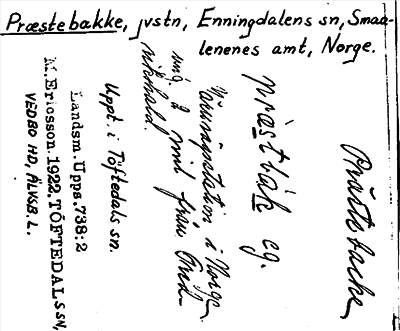 Præstebakke, jvstn, Enningdalens sn, Smaa-
lenenes amt, Norge.
Prästebacke
prästbak eg.
Järnvägsstation i Norge
ung. 2 mil från Fred-
rikshald.
Uppt. i Töftedals sn.
Landsm. Upps. 738:2
M. Ericsson. 1922. TÖFTEDALS SN,
VEDBO HD, ÄLVSB. L.